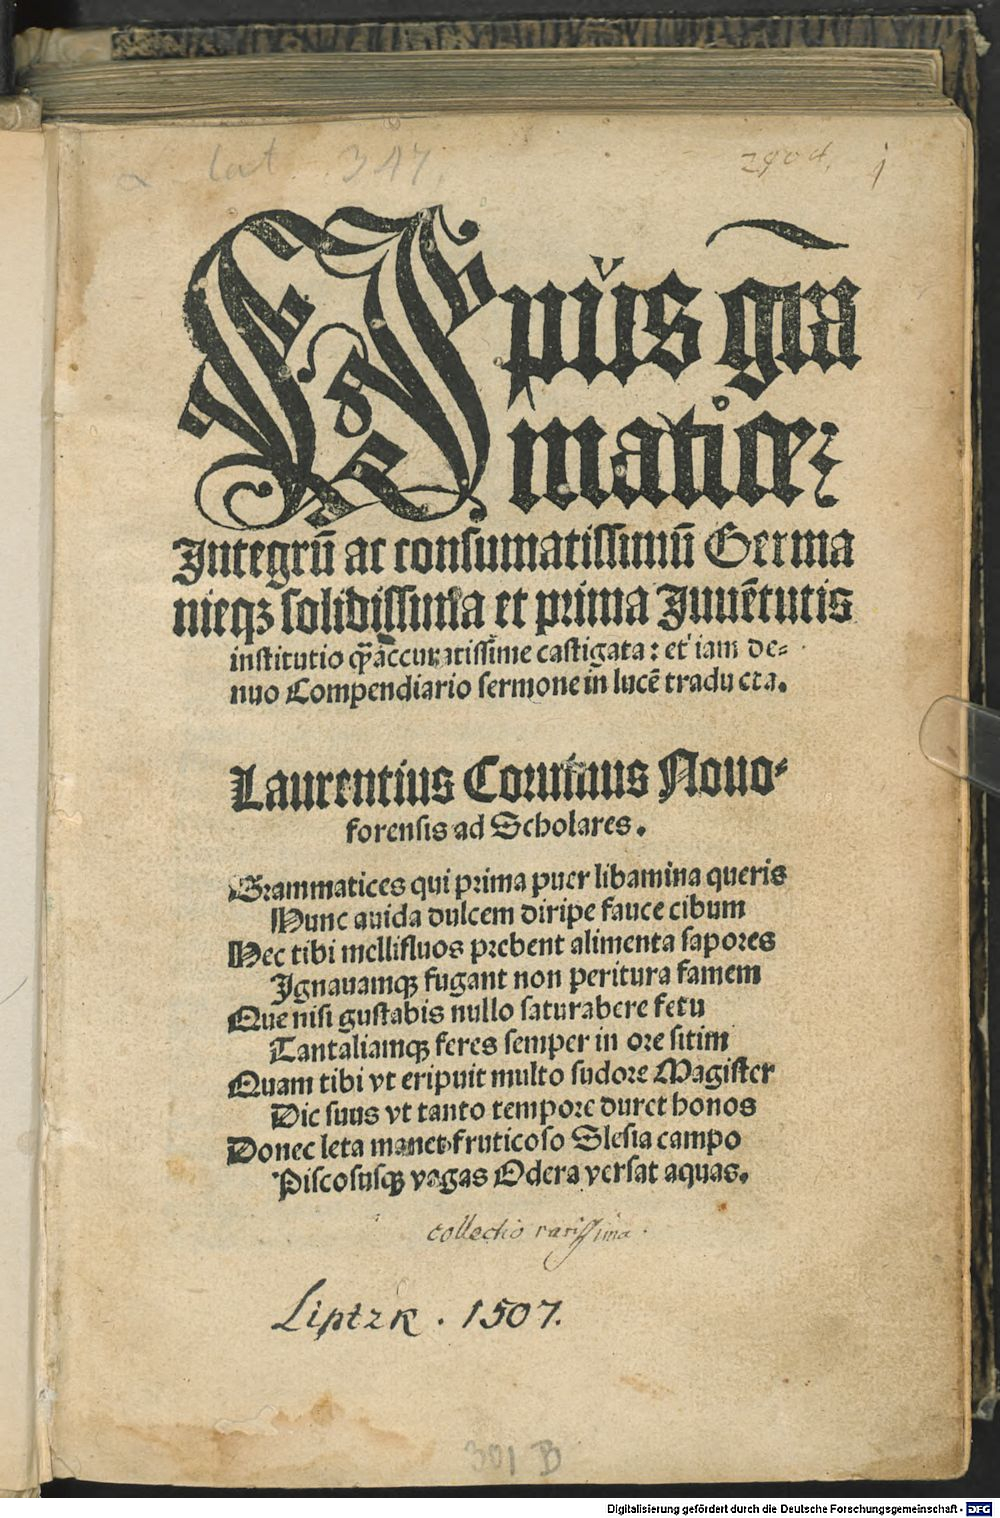 L lat 347.
2904. 1
Opus̄ grā
maticeꝫ
Integrū ac consumatissimū Germa
nieqꝫ solidissima et prima Iuuētutis
institutio q̄ꝫaccuratissime castigata: et iam de⸗
nuo Compendiario sermone in lucē traducta.
Laurentius Coruinus Nouo⸗
forensis ad Scholares.
Grammatices qui prima puer libamina queris
Nunc auida dulcem diripe fauce cibum
Hec tibi mellifluos prebent alimenta sapores
Ignauamqꝫ fugant non peritura famem
Que nisi gustabis nullo saturabere fetu
Tantaliamqꝫ feres semper in ore sitim
Quam tibi vt eripuit multo sudore Magister
Dic suus vt tanto tempore duret honos
Donec leta manet fruticoso Slesia campo
Piscosusqꝫ vagas Odera versat aquas.
collectio rarissima.
Liptzk. 1507.
301 B
Digitalisierung gefördert durch die Deutsche Forschungsgemeinschaft - DFG